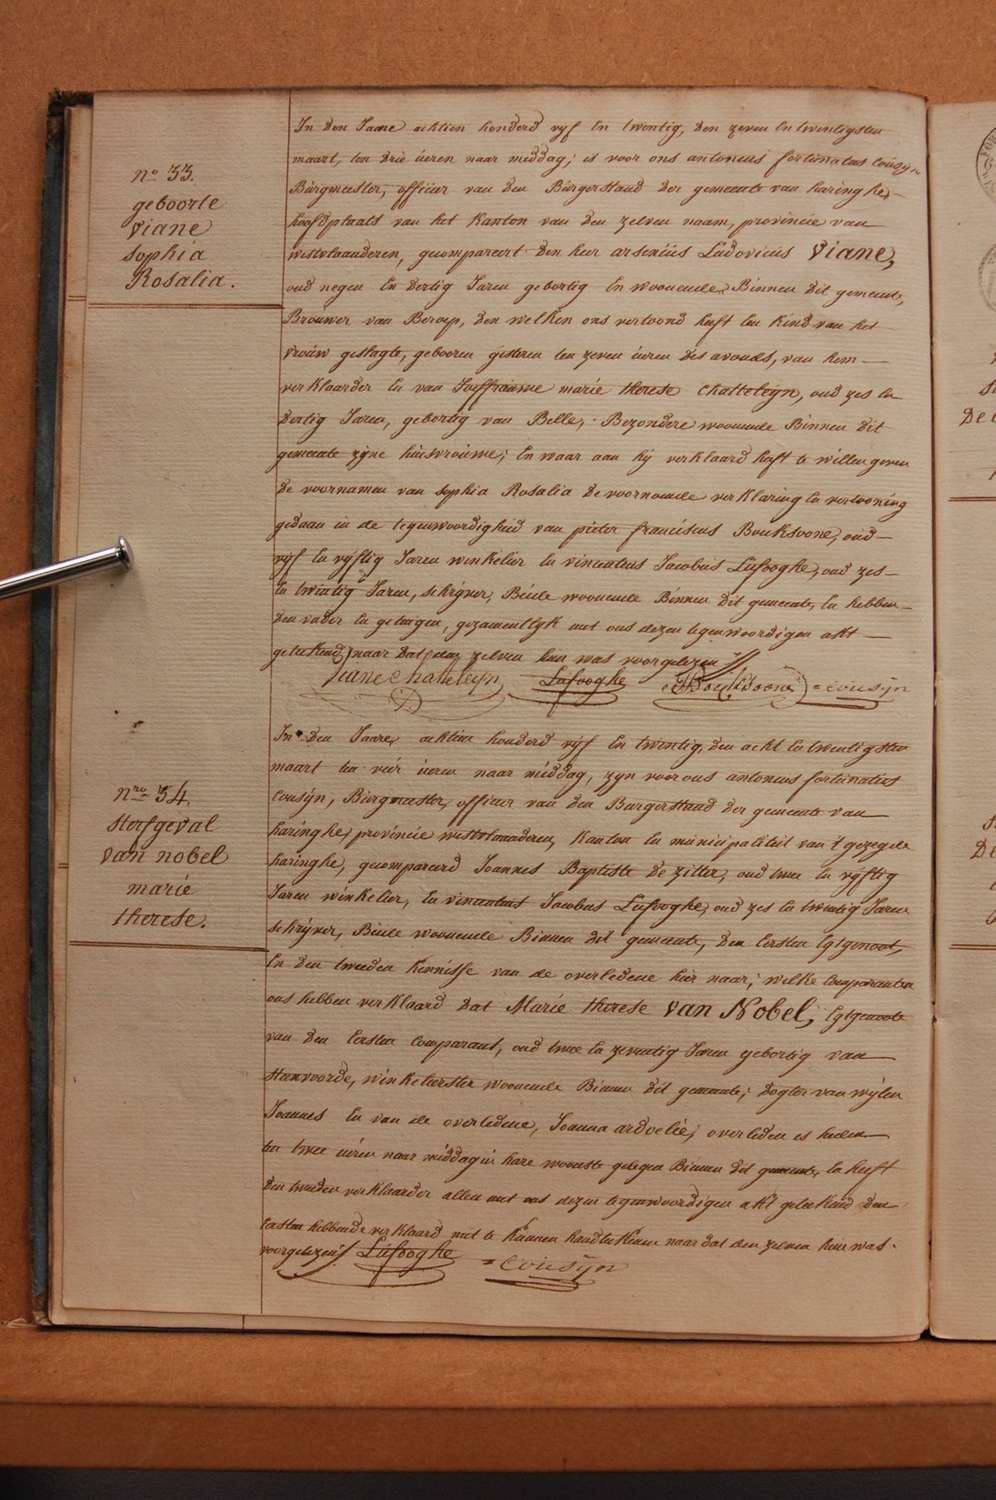 no 33.
geboorte
Viane
Sophia
Rosalia.
In den Jaare achtien honderd vyf En twentig, den zeven En twintigsten
maart, ten drie üeren naar middag; is voor ons antonius fortunatus Cousyn
Bürgmeester, officier van den Bürgerstaad der gemeente van haringhe,
hoofdplaats van het Kanton van den zelven naam, provincie van
westvlaanderen, gecompareert den heer arseniüs Lüdovicus Viane,
oud negen En dertig Jaren gebortig En woonende Binnen dit gemeente,
Brouwer van Beroep, den welken ons vertoond heeft Een Kind van het
vrouw geslagte, gebooren gisteren ten zeven üeren des avonds, van hem
verklaarder En van Joeffrauwe marie therese Chatteleyn, oud zes En
dertig Jaren, gebortig van Belle, Bezondere woonende Binnen dit
gemeente zyne huisvrouwe; En waar aan hij verklaard heeft te willen geven
de voornamen van Sophia Rosalia de voornoemde verklaring En vertooning
gedaan in de tegenwoordigheid van pieter franciscus Bouksoone, oud
vyf En vyftig Jaren winkelier En vincentius Jacobus Lefooghe, oud zes
En twintig Jaren, schryver, Beide woonende Binnen dit gemeente, En hebben
den vader En getuigen, gezamentlyk met ons dezen tegenwoordigen akt
geteekend naar dat den zelven hun was voorgelezen
Viane Chatteleyn Lefooghe Bouksoone Cousyn
nro 34.
Sterfgeval
van nobel
marie
therese.
In den Jaare achtien honderd vyf En twintig, den acht En twentigsten
maart ten vier üeren naar middag, zyn voor ons antonius fortunatus
Cousyn, Bürgmeester, officier van den Burgerstaad der gemeente van
haringhe, provincie westvlaanderen, Kanton En minicipaliteit van 't gezegde
haringhe, gecompareerd Joannes Baptiste de Zitter, oud twee En vyftig
Jaren winkelier, En vincentius Jacobus Lefooghe, oud zes En twintig Jaren
schryver, Beide woonende Binnen dit gemeente, den Eersten Egtgenoot,
En den tweeden Kennisse van de overledene hier naar; welke Comparanten
ons hebben verklaard dat Marie therese van Nobel, Egtgenoote
van den Eersten Comparant, oud twee En zeventig Jaren gebortig van
Steenvoorde, winkelierster woonende Binnen dit gemeente; dogter van wylen
Joannes En van de overledene, Joanna ardoelie; overleden is heden
ten twee üeren naar middag in hare woonste gelegen Binnen dit gemeente, En heeft
den tweeden verklaarder alleen met ons dezen tegenwoordigen akt geteekend den
Eersten hebbende verklaard niet te Künnen handteekenen naar dat den zelven hun was
voorgelezen Lefooghe Cousyn